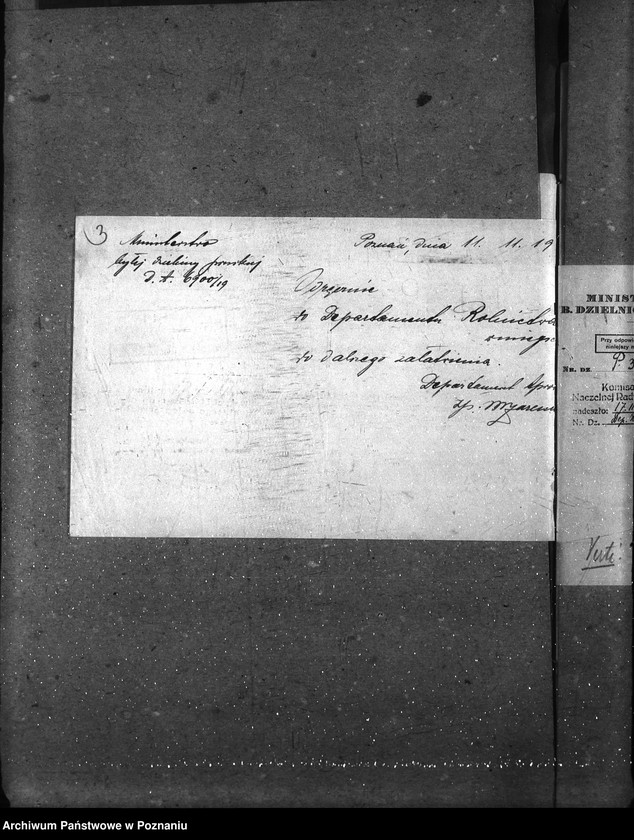 3
Ministerstwo
byłej dzielnicy pruskiej
D. A. 6900/19
Poznań, dnia 11. 11. 19
do Departamentu Rolnictwa
do dalszego załatwienia.
Departament
MINIST
B. DZIELNIC
Przy odpowi
niniejszy n
NR. DZ. P. 3
Komisa
Naczelnej Rad
nadeszło: 17.11
Nr. Dz.
Verte!
Archiwum Państwowe w Poznaniu